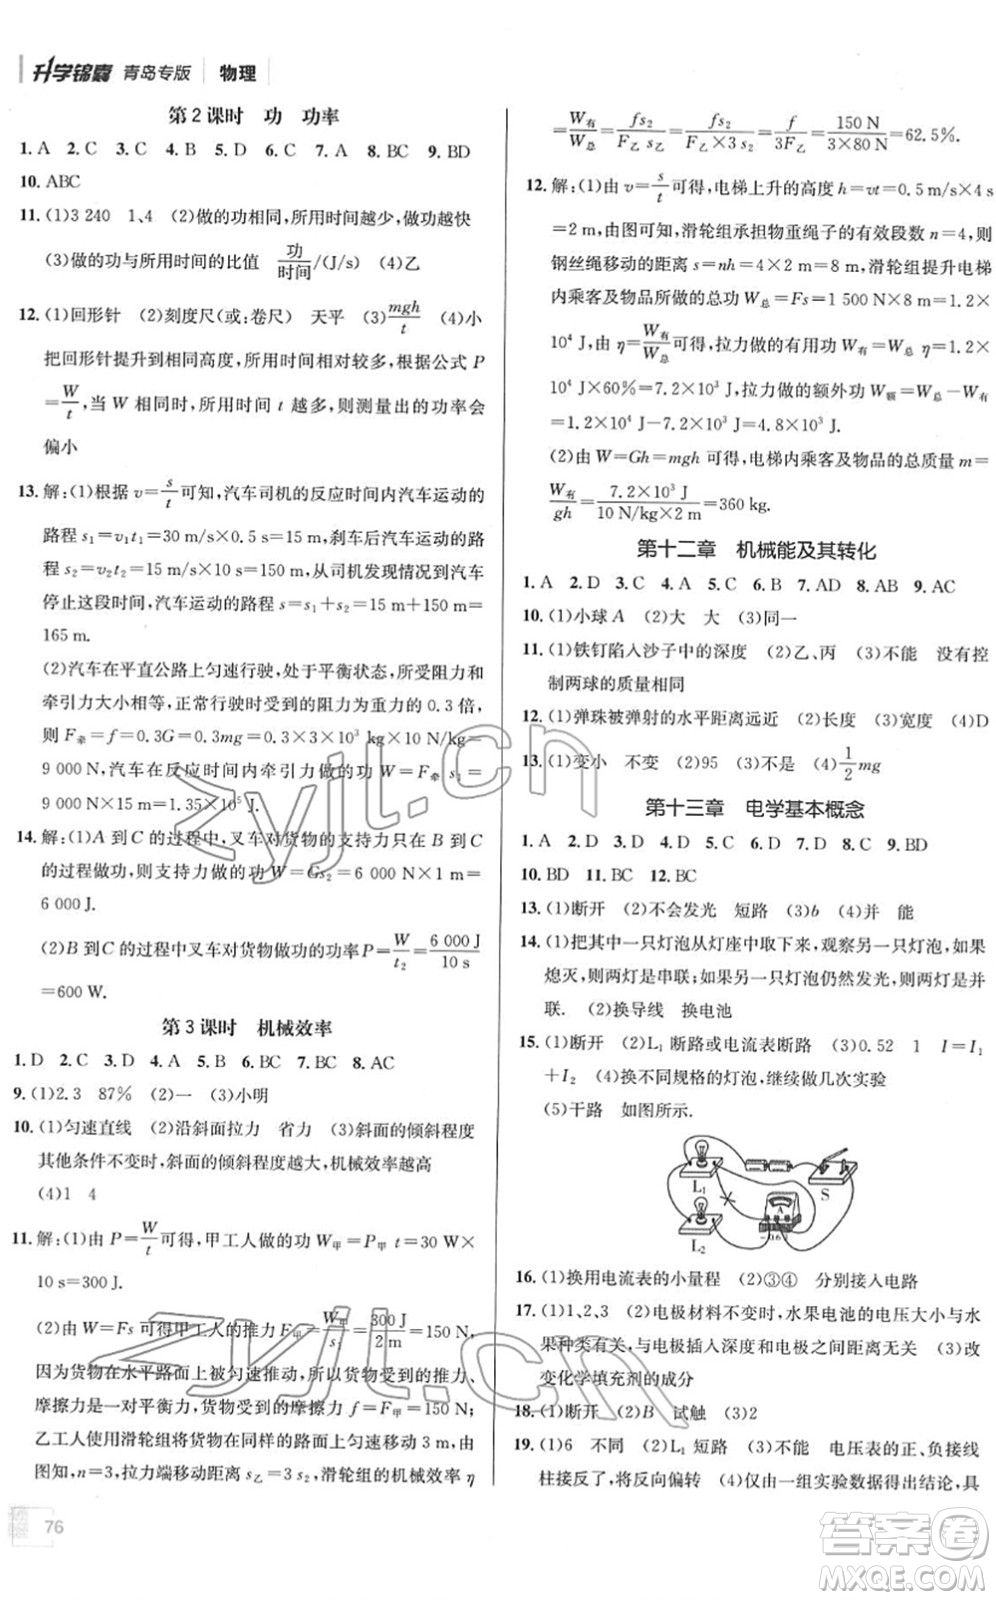 升学锦囊 青岛专版 物理
第2课时 功 功率
1. A 2. C 3. C 4. B 5. D 6. C 7. A 8. BC 9. BD
10. ABC
11. (1)3 240 1、4 (2)做的功相同,所用时间越少,做功越快
(3)做的功与所用时间的比值 功/时间/(J/s) (4)乙
12. (1)回形针 (2)刻度尺(或:卷尺) 天平 (3)mgh/t (4)小
把回形针提升到相同高度,所用时间相对较多,根据公式 P
=W/t,当 W 相同时,所用时间 t 越多,则测量出的功率会
偏小
13. 解:(1)根据 v=s/t可知,汽车司机的反应时间内汽车运动的
路程 s₁=v₁t₁=30 m/s×0.5 s=15 m,刹车后汽车运动的路
程 s₂=v₂t₂=150 m,从司机发现情况到汽车完全
停止这段时间,汽车运动的路程 s=s₁+s₂=15 m+150 m=
165 m.
(2)汽车在平直公路上匀速行驶,处于平衡状态,所受阻力和
牵引力大小相等,正常行驶时受到的阻力为重力的 0.3 倍,
则 F牵=f=0.3G=0.3mg=0.3×3×10³ kg×10 N/kg=
9 000 N,汽车在反应时间内牵引力做的功 W=F牵 s₁=
9 000 N×15 m=1.35×10⁵ J.
14. 解:(1)A 到 C 的过程中,叉车对货物的支持力只在 B 到 C
的过程做功,所以支持力做的功 W=Gs₂=6 000 N×1 m=
6 000 J.
(2)B 到 C 的过程中叉车对货物做功的功率 P=W/t₂=6 000 J/10 s
=600 W.
第3课时 机械效率
1. D 2. C 3. C 4. A 5. B 6. BC 7. BC 8. AC
9. (1)2.3 87% (2)一 (3)小明
10. (1)匀速直线 (2)沿斜面拉力 省力 (3)斜面的倾斜程度
其他条件不变时,斜面的倾斜程度越大,机械效率越高
(4)1 4
11. 解:(1)由 P=W/t可得,甲工人做的功 W甲=P甲 t=30 W×
10 s=300 J.
(2)由 W=Fs 可得甲工人的推力 F甲=W甲/s₁=300 J/2 m=150 N,
因为货物在水平路面上被匀速推动,所以货物受到的推力、
摩擦力是一对平衡力,货物受到的摩擦力 f=F甲=150 N,
乙工人使用滑轮组将货物在同样的路面上移动 3 m,由
图知,n=3,拉力端移动 s乙=3s₂,滑轮组的机械效率 η
=W有/W总=fs₂/F乙 s乙=fs₂/F乙×3 s₂=f/3F乙=150 N/3×80 N=62.5%.
12. 解:(1)由 v=s/t可得,电梯上升的高度 h=vt=0.5 m/s×4 s
=2 m,由图可知,滑轮组承担物重绳子的有效段数 n=4,则
钢丝绳移动的距离 s=nh=4×2 m=8 m,滑轮组提升电梯
内乘客及物品所做的总功 W总=Fs=1 500 N×8 m=1.2×
10⁴ J,由 η=W有/W总可得,拉力做的有用功 W有=W总 η=1.2×
10⁴ J×60%=7.2×10³ J,拉力做的额外功 W额=W总-W有
=1.2×10⁴ J-7.2×10³ J=4.8×10³ J.
(2)由 W=Gh=mgh 可得,电梯内乘客及物品的总质量 m=
W有/gh=7.2×10³ J/10 N/kg×2 m=360 kg.
第十二章 机械能及其转化
1. A 2. D 3. C 4. A 5. C 6. B 7. AD 8. AB 9. AC
10. (1)小球 A (2)大 大 (3)同一
11. (1)铁钉陷入沙子中的深度 (2)乙、丙 (3)不能 没有控
制两球的质量相同
12. (1)弹珠被弹射的水平距离远近 (2)长度 (3)宽度 (4)D
13. (1)变小 不变 (2)95 (3)不是 (4)1/2 mg
第十三章 电学基本概念
1. A 2. D 3. D 4. B 5. C 6. B 7. D 8. C 9. BD
10. BD 11. BC 12. BC
13. (1)断开 (2)不会发光 短路 (3)b (4)并 能
14. (1)把其中一只灯泡从灯座中取下来,观察另一只灯泡,如果
熄灭,则两灯是串联;如果另一只灯泡仍然发光,则两灯是并
联. (2)换导线 换电池
15. (1)断开 (2)L₁ 断路或电流表断路 (3)0.52 1 I=I₁
+I₂ (4)换不同规格的灯泡,继续做几次实验
(5)干路 如图所示.
L₁ S
A
-0.6
L₂
16. (1)换用电流表的小量程 (2)③④ 分别接入电路
17. (1)1、2、3 (2)电极材料不变时,水果电池的电压大小与水
果种类有关,与电极插入深度和电极之间距离无关 (3)改
变化学填充剂的成分
18. (1)断开 (2)B 试触 (3)2
19. (1)6 不同 (2)L₁ 短路 (3)不能 电压表的正、负接线
柱接反了,将反向偏转 (4)仅由一组实验数据得出结论,具
76
zyjl.cn
zyjl.cn
答案圈
MXQE.COM